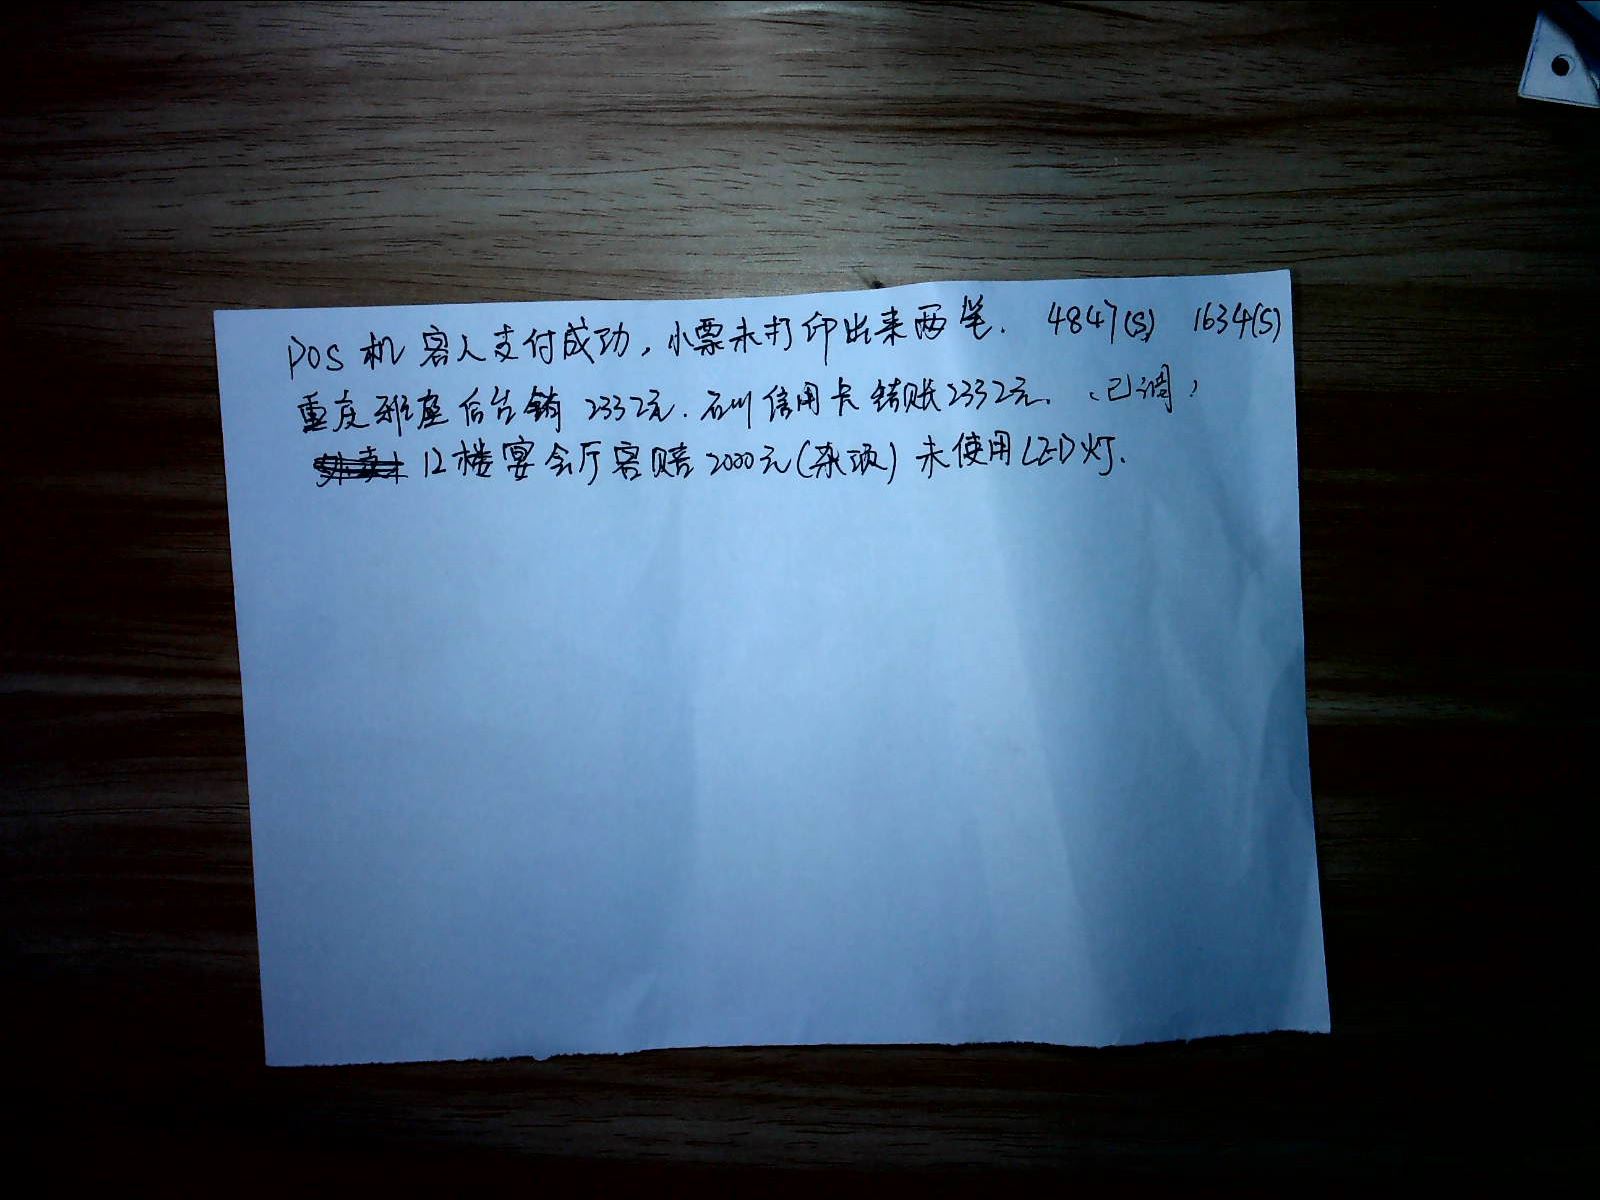 POS机客人支付成功，小票未打印出来两笔. 4847(S) 1634(S)
重庆雅座后台销 2332元. 石川信用卡销账2332元. 、已调，
12楼宴会厅客赔2000元(杂项) 未使用LED灯.